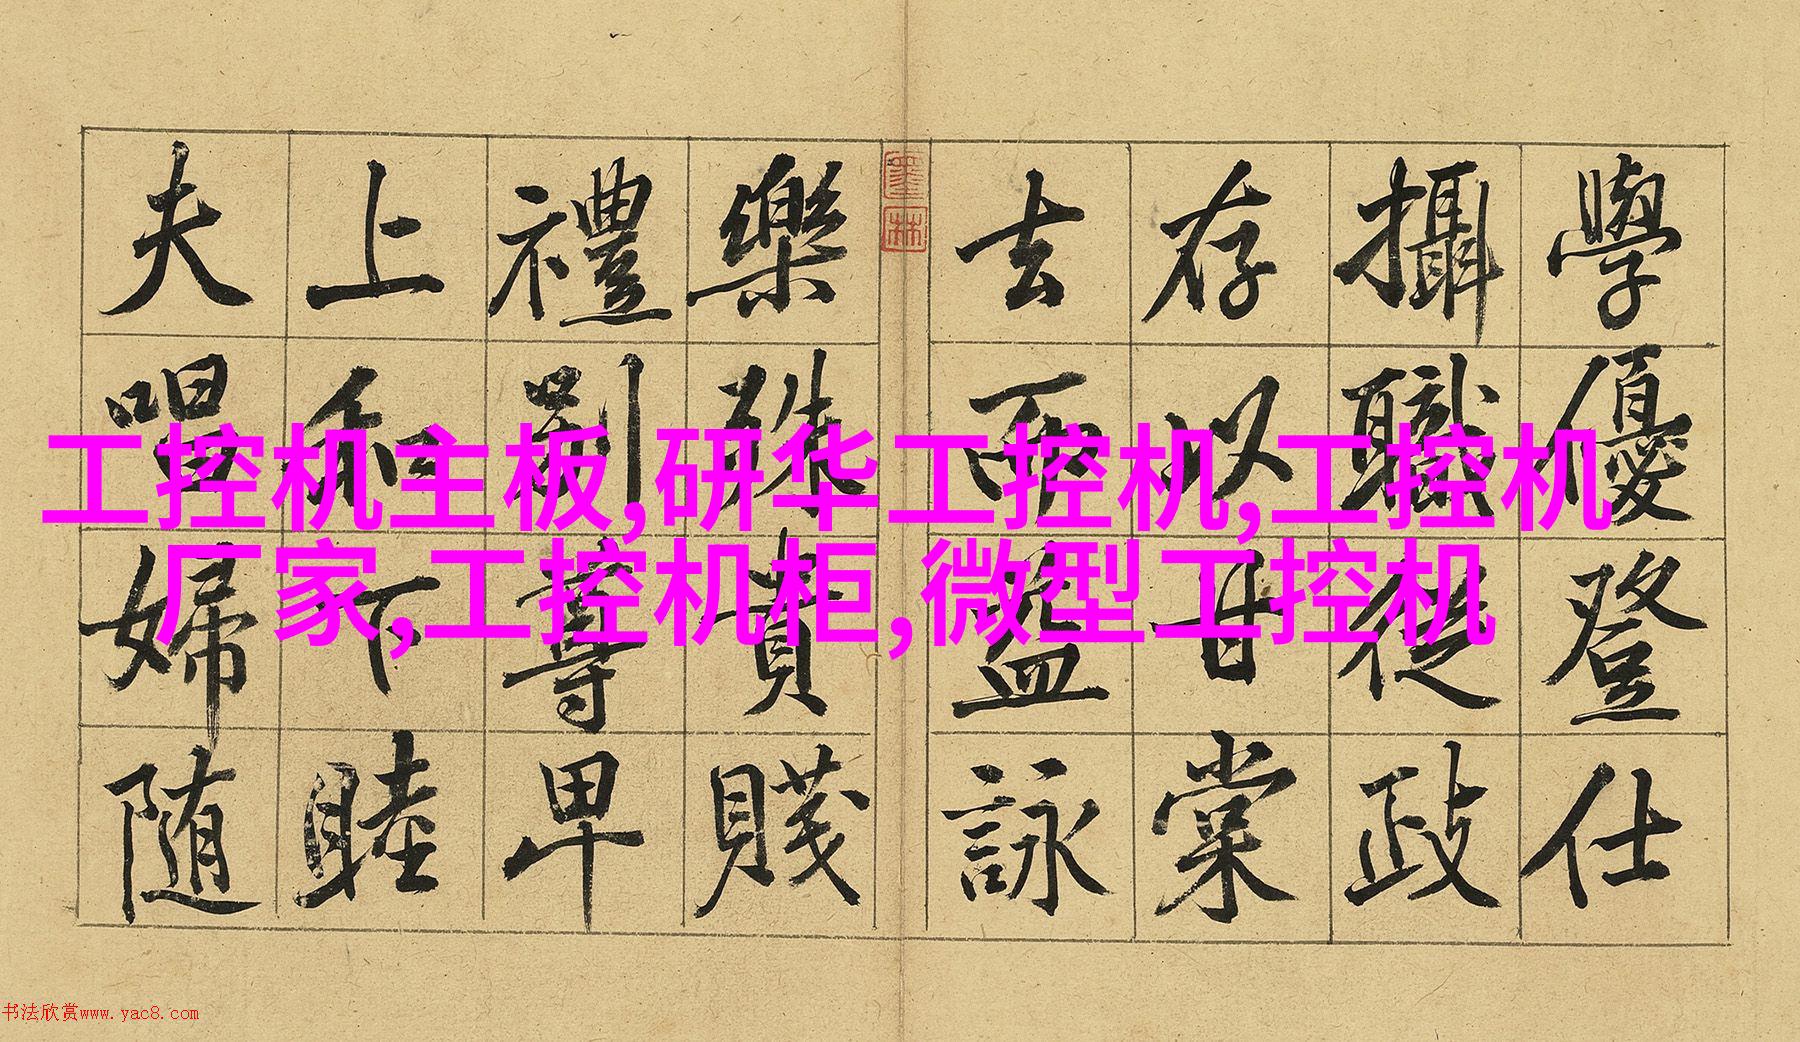 學優登仕
攝職從政
存以甘棠
去而益詠
樂殊貴賤
禮別尊卑
上和下睦
夫唱婦随
墨林
工控机主板,研华工控机,工控机
厂家,工控机柜,微型工控机
书法欣赏www.yac8.com